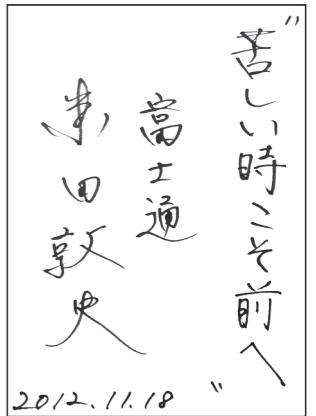 "苦しい時こそ前へ"
富士通
柴田敦史
2012.11.18